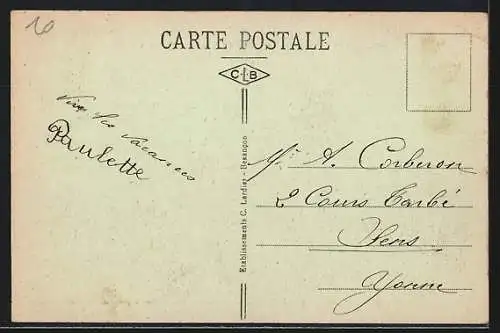 20
CARTE POSTALE
CLB
Vive les vacances
Paulette
Etablissements C. Lardier - Besançon
Mr A. Corberon
2 Cours Tarbé
Sens
Yonne